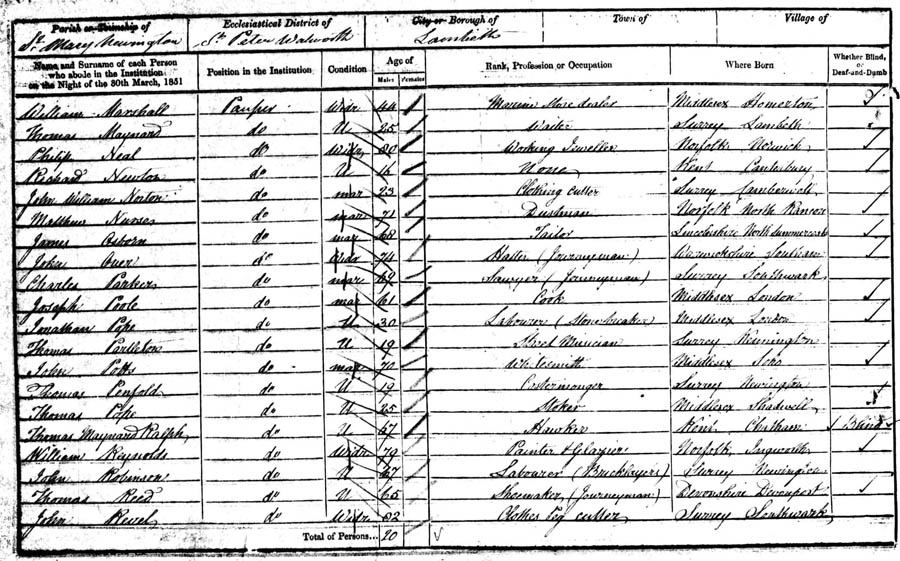 Parish or Township of Ecclesiastical District of City or Borough of Town of Village of
St. Mary Newington St. Peter Walworth Lambeth
Name and Surname of each Person who abode in the Institution on the Night of the 30th March, 1851 Position in the Institution Condition Age of Males Females Rank, Profession or Occupation Where Born Whether Blind, or Deaf-and-Dumb
William Marshall Pauper Widr 44 Marine Store dealer Middlesex Homerton
Thomas Maynard do U 25 Waiter Surrey Lambeth
Philip Neal do Widr 80 Working Jeweller Norfolk Norwich
Richard Newton do U 16 None Kent Canterbury
John William Norton do mar 23 Clothing Cutter Surrey Camberwell
Matthew Nurse do mar 71 Dustman Norfolk North
James Osborn do mar 68 Tailor Lincolnshire
John do Widr 74 Hatter (Journeyman) Warwickshire Southam
Charles Parker do mar 69 Sawyer (Journeyman) Surrey Southwark
Joseph Poole do mar 61 Cook Middlesex London
Jonathan Pope do U 30 Labourer (Stonebreaker) Middlesex London
Thomas Partleton do U 19 Street Musician Surrey Kennington
John Potts do mar 70 Whitesmith Middlesex Soho
Thomas Penfold do U 19 Costermonger Surrey Newington
Thomas Pape do U 25 Stoker Middlesex Shadwell
Thomas Maynard Ralph do U 57 Hawker Kent Chatham 1 Blind
William Reynolds do Widr 79 Painter & Glazier Norfolk Ingworth
John Robinson do U 67 Labourer (Bricklayers) Surrey Newington
Thomas Reed do U 65 Shoemaker (Journeyman) Devonshire Devonport
John Revel do Widr 82 Clothes Peg cutter Surrey Southwark
Total of Persons... 20